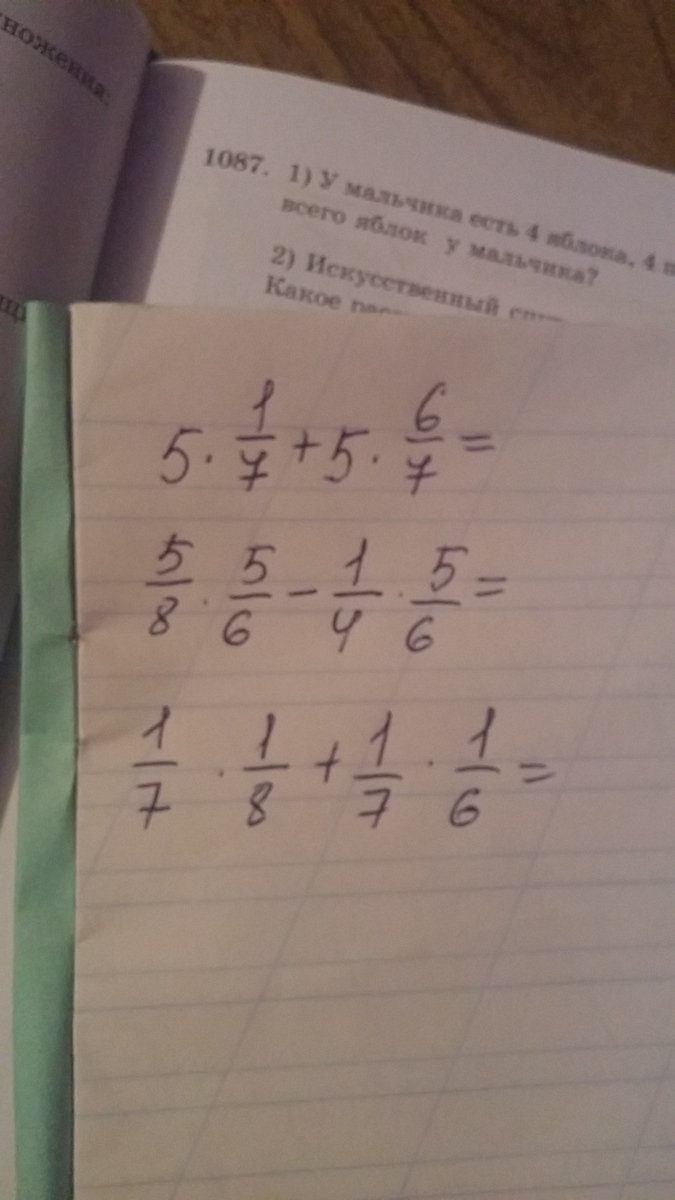 ножения:
1087. 1) У мальчика есть 4 яблока, 4
всего яблок у мальчика?
2) Искусственный
Какое
5 · 1/7 + 5 · 6/7 =
5/8 · 5/6 − 1/4 · 5/6 =
1/7 · 1/8 + 1/7 · 1/6 =